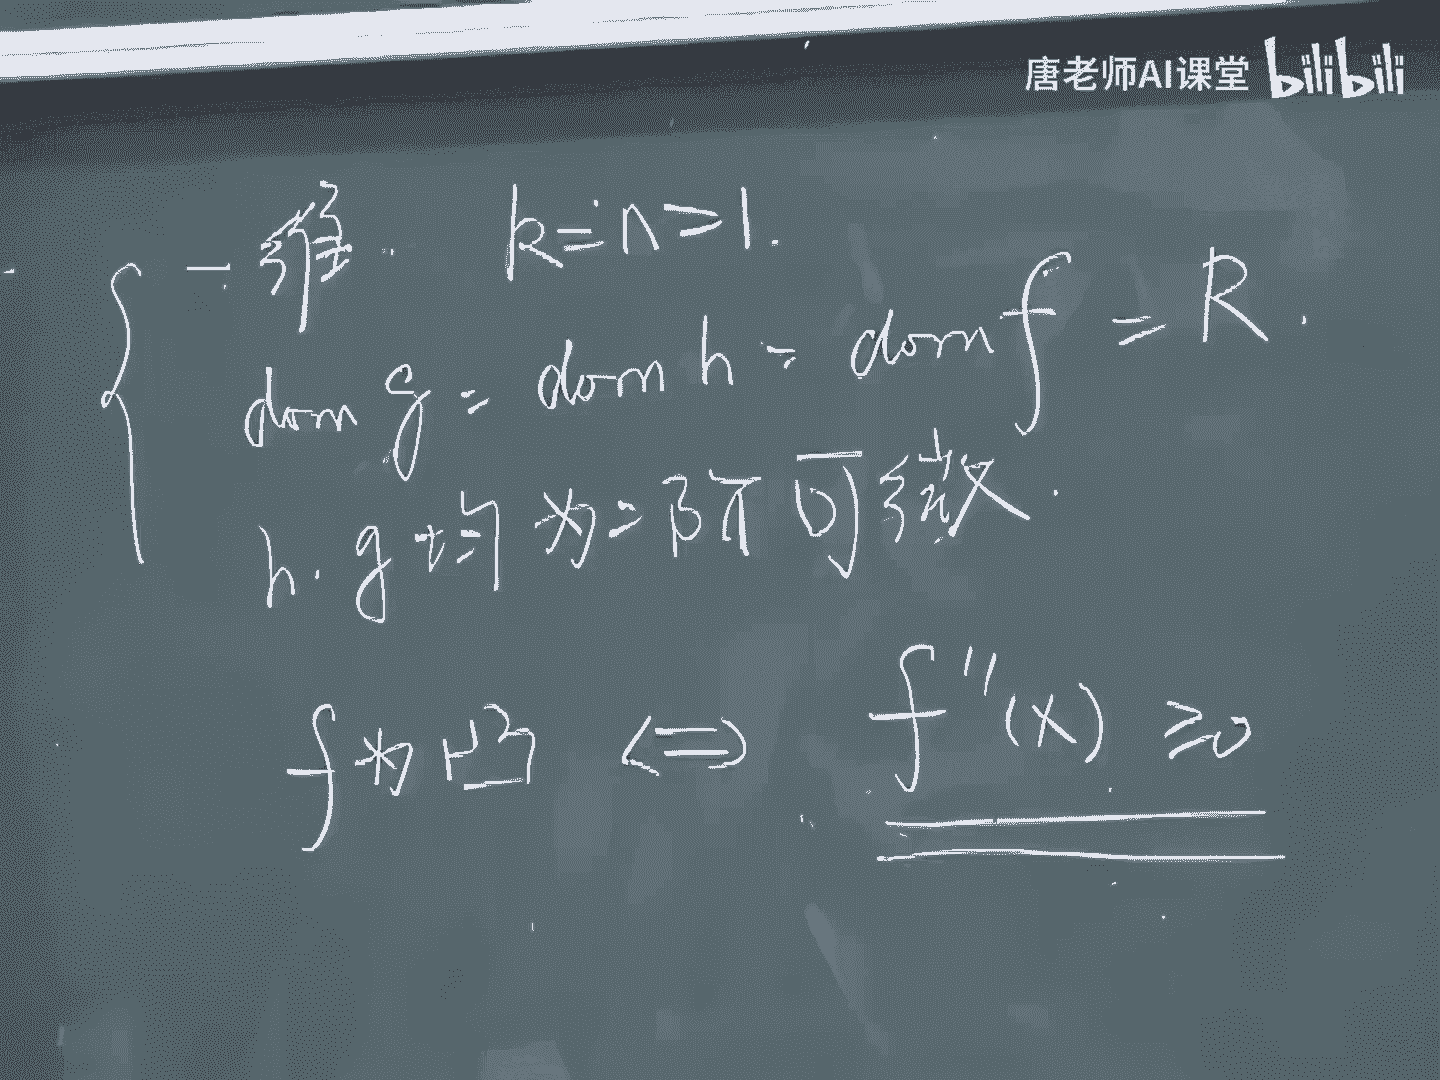 唐老师AI课堂 bilibili
一维. k=n=1.
dom g = dom h = dom f = R.
h.g均为二阶可微.
f为凸 <=> f''(x) ≥0